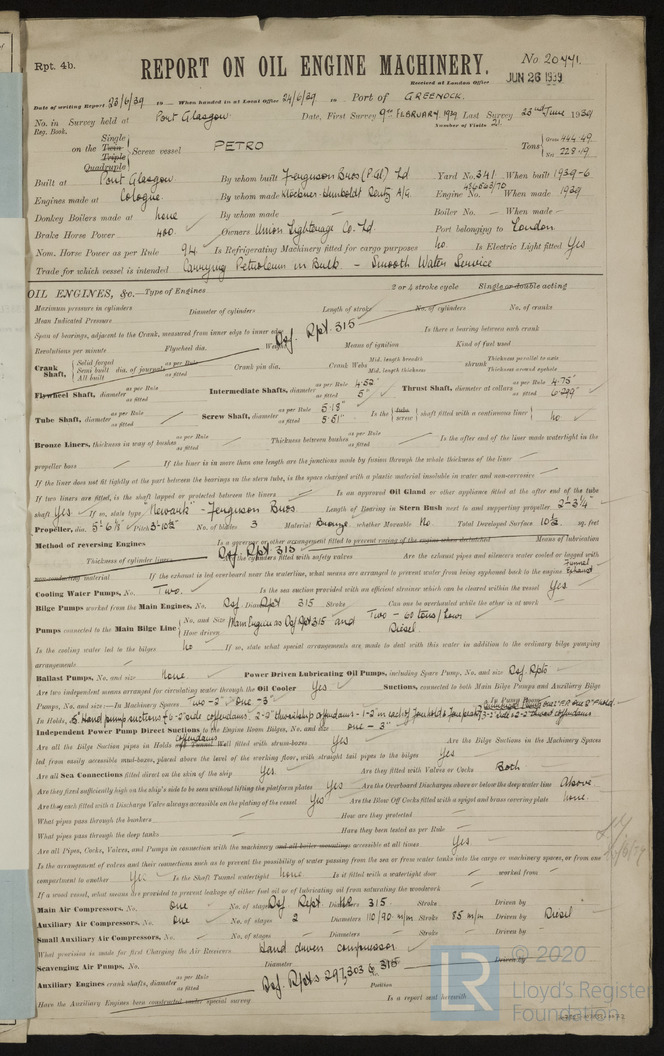 Rpt. 4b.
REPORT ON OIL ENGINE MACHINERY.
No. 20441.
Received at London Office
JUN 26 1939
Date of writing Report 23/6/39 19 When handed in at Local Office 24/6/39 19 Port of GREENOCK.
No. in Survey held at Port Glasgow Date, First Survey 9th FEBRUARY, 1939 Last Survey 23nd June 1939
Reg. Book. Number of Visits 21.
Single
on the Twin Screw vessel PETRO Tons Gross 444.49
Triple
Quadruple Net 228.19
Built at Port Glasgow By whom built Ferguson Bros (P.G) Ld Yard No. 341 When built 1939-6
Engines made at Cologne By whom made Klöckner-Humboldt Deutz A/G. Engine No. 486563/70 When made 1939
Donkey Boilers made at none By whom made Boiler No. When made
Brake Horse Power 400. Owners Union Lighterage Co. Ld. Port belonging to London
Nom. Horse Power as per Rule 94 Is Refrigerating Machinery fitted for cargo purposes No. Is Electric Light fitted Yes
Trade for which vessel is intended Carrying Petroleum in Bulk - Smooth Water Service
OIL ENGINES, &c.—Type of Engines 2 or 4 stroke cycle Single or double acting
Maximum pressure in cylinders Diameter of cylinders Length of stroke No. of cylinders No. of cranks
Mean Indicated Pressure Ref. Rpt. 315
Span of bearings, adjacent to the Crank, measured from inner edge to inner edge Is there a bearing between each crank
Revolutions per minute Flywheel dia. Weight Means of ignition Kind of fuel used
Crank Shaft, Solid forged Semi built All built dia. of journals as per Rule as fitted Crank pin dia. Crank Webs Mid. length breadth Mid. length thickness shrunk Thickness parallel to axis Thickness around eyehole
Flywheel Shaft, diameter as per Rule as fitted Intermediate Shafts, diameter as per Rule 4.52" as fitted 5" Thrust Shaft, diameter at collars as per Rule 4.75" as fitted 6.299"
Tube Shaft, diameter as per Rule as fitted Screw Shaft, diameter as per Rule 5.18" as fitted 5.51" Is the tube screw shaft fitted with a continuous liner No
Bronze Liners, thickness in way of bushes as per Rule as fitted Thickness between bushes as per Rule as fitted Is the after end of the liner made watertight in the
propeller boss If the liner is in more than one length are the junctions made by fusion through the whole thickness of the liner
If the liner does not fit tightly at the part between the bearings in the stern tube, is the space charged with a plastic material insoluble in water and non-corrosive
If two liners are fitted, is the shaft lapped or protected between the liners Is an approved Oil Gland or other appliance fitted at the after end of the tube
shaft Yes If so, state type "Newark" - Ferguson Bros. Length of Bearing in Stern Bush next to and supporting propeller 2'-3¼"
Propeller, dia. 5'-6⅛" Pitch 3'-10½" No. of blades 3 Material Bronze. whether Moveable No. Total Developed Surface 10½ sq. feet
Method of reversing Engines Is a governor or other arrangement fitted to prevent racing of the engine when declutched Means of lubrication
Ref. Rpt 315
Thickness of cylinder liners Are the cylinders fitted with safety valves Are the exhaust pipes and silencers water cooled or lagged with
non-conducting material If the exhaust is led overboard near the waterline, what means are arranged to prevent water from being syphoned back to the engine Funnel Exhaust
Cooling Water Pumps, No. Two. Is the sea suction provided with an efficient strainer which can be cleared within the vessel Yes
Bilge Pumps worked from the Main Engines, No. Ref. Diam. Rpt 315 Stroke Can one be overhauled while the other is at work
Pumps connected to the Main Bilge Line No. and Size Main Engine as Ref. Rpt 315 and Two - 60 tons/hour
How driven Diesel
Is the cooling water led to the bilges No If so, state what special arrangements are made to deal with this water in addition to the ordinary bilge pumping
arrangements
Ballast Pumps, No. and size None Power Driven Lubricating Oil Pumps, including Spare Pump, No. and size Ref. Rpts
Are two independent means arranged for circulating water through the Oil Cooler Yes Suctions, connected to both Main Bilge Pumps and Auxiliary Bilge
Pumps, No. and size:—In Machinery Spaces Two - 2" One - 3"
Independent Power Pump Direct Suctions to the Engine Room Bilges, No. and size one - 3"
Are all the Bilge Suction pipes in Holds and Tunnel Well fitted with strum-boxes Yes Are the Bilge Suctions in the Machinery Spaces
cofferdams
led from easily accessible mud-boxes, placed above the level of the working floor, with straight tail pipes to the bilges Yes
Are all Sea Connections fitted direct on the skin of the ship Yes. Are they fitted with Valves or Cocks Both
Are they fixed sufficiently high on the ship's side to be seen without lifting the platform plates Yes Are the Overboard Discharges above or below the deep water line Above
Are they each fitted with a Discharge Valve always accessible on the plating of the vessel Yes Are the Blow Off Cocks fitted with a spigot and brass covering plate none.
What pipes pass through the bunkers How are they protected
What pipes pass through the deep tanks Have they been tested as per Rule
Are all Pipes, Cocks, Valves, and Pumps in connection with the machinery and all boiler mountings accessible at all times Yes.
Is the arrangement of valves and their connections such as to prevent the possibility of water passing from the sea or from water tanks into the cargo or machinery spaces, or from one
compartment to another Yes Is the Shaft Tunnel watertight none. Is it fitted with a watertight door worked from
If a wood vessel, what means are provided to prevent leakage of either fuel oil or of lubricating oil from saturating the woodwork
Main Air Compressors, No. one No. of stages Ref. Rpt. Diam. 315 Stroke Driven by
Auxiliary Air Compressors, No. one No. of stages 2 Diameters 110/90 m/m Stroke 85 m/m Driven by Diesel
Small Auxiliary Air Compressors, No. No. of stages Diameters Stroke Driven by
What provision is made for first Charging the Air Receivers Hand driven compressor
Scavenging Air Pumps, No. Diameter Driven by
Auxiliary Engines crank shafts, diameter as per Rule as fitted Ref. Rpts 297,303 & 315 Position
Have the Auxiliary Engines been constructed under special survey Is a report sent herewith
LR © 2020
Lloyd's Register
Foundation